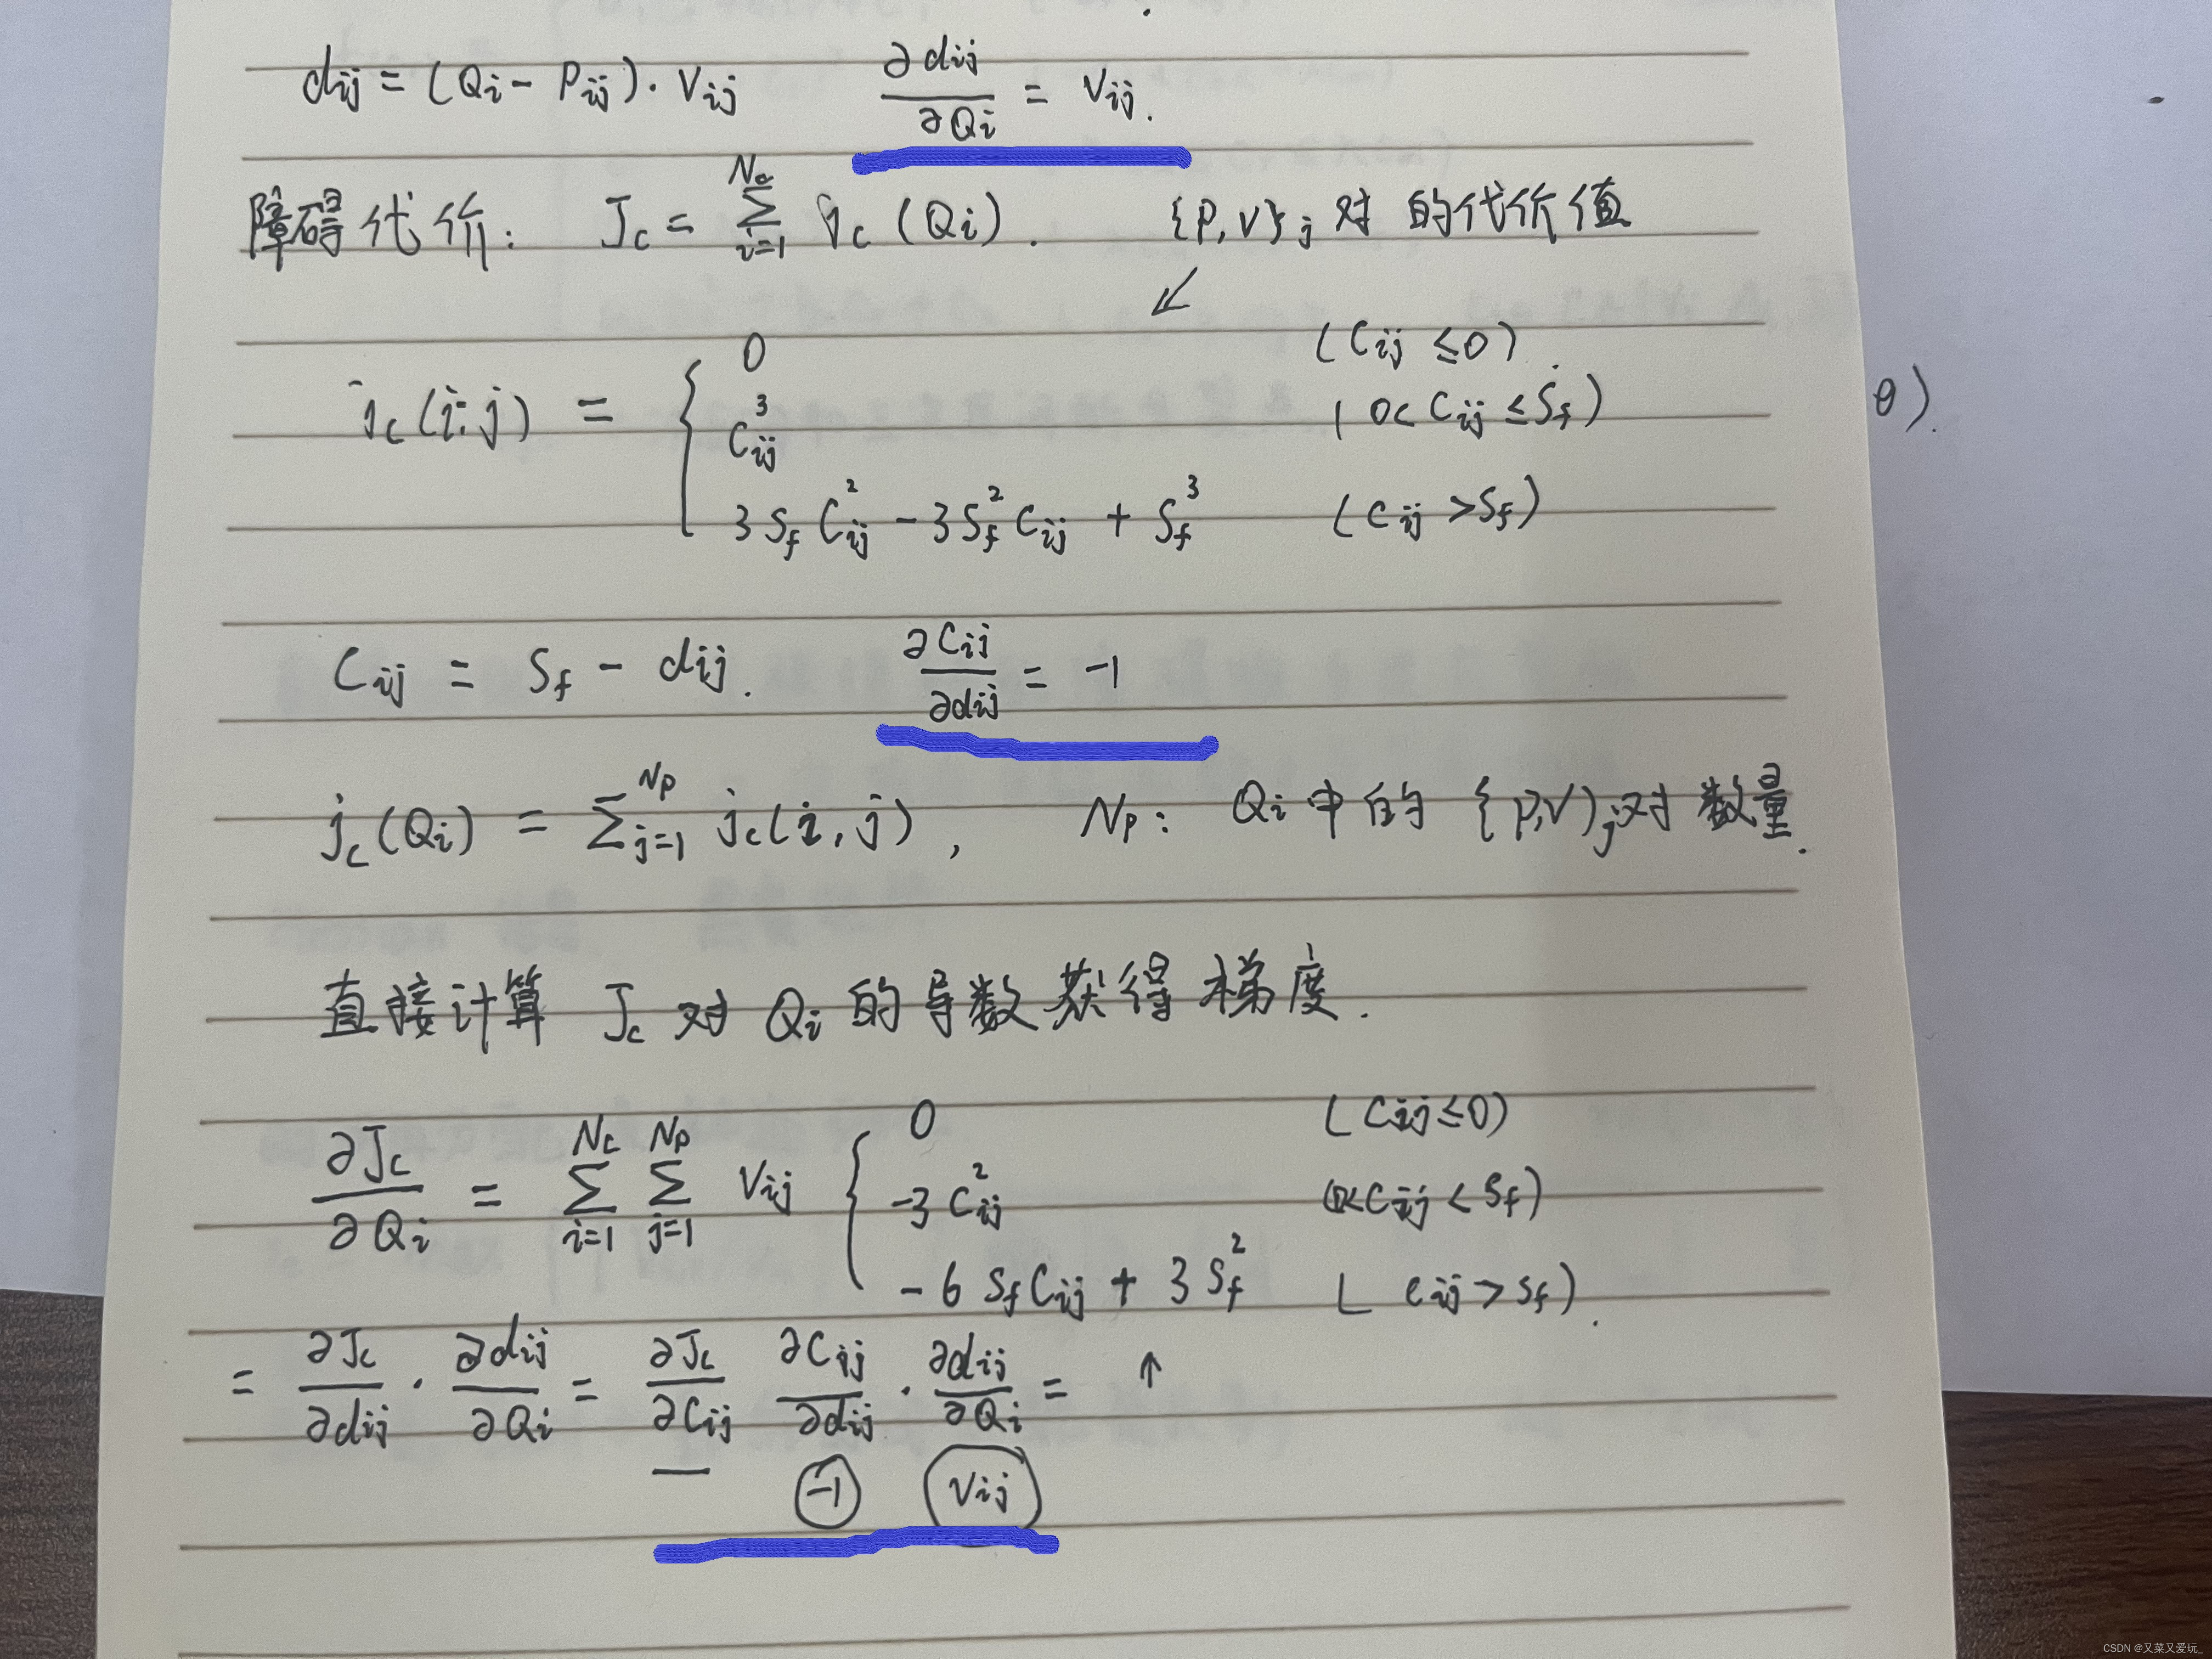 dij = (Qi - Pij) · Vij   ∂dij/∂Qi = Vij.
障碍代价: Jc = Σ_{i=1}^{Nc} jc (Qi).   {P,V}j 对 的代价值
↙
jc(i,j) = { 0   (Cij ≤0).
Cij^3   (0< Cij ≤Sf)
θ).
3 Sf Cij^2 - 3Sf^2 Cij + Sf^3   (Cij >Sf)
Cij = Sf - dij.   ∂Cij/∂dij = -1
jc(Qi) = Σ_{j=1}^{Np} jc(i,j),   Np: Qi 中的 {P,V)j对 数量.
直接计算 Jc 对 Qi 的导数获得梯度.
∂Jc/∂Qi = Σ_{i=1}^{Nc} Σ_{j=1}^{Np} Vij { 0   (Cij≤0)
-3 Cij^2   (0<Cij < Sf)
-6 Sf Cij + 3 Sf^2   ( Cij > Sf).
= ∂Jc/∂dij · ∂dij/∂Qi = ∂Jc/∂Cij ∂Cij/∂dij · ∂dij/∂Qi =   ↑
-1   Vij
CSDN @又菜又爱玩_